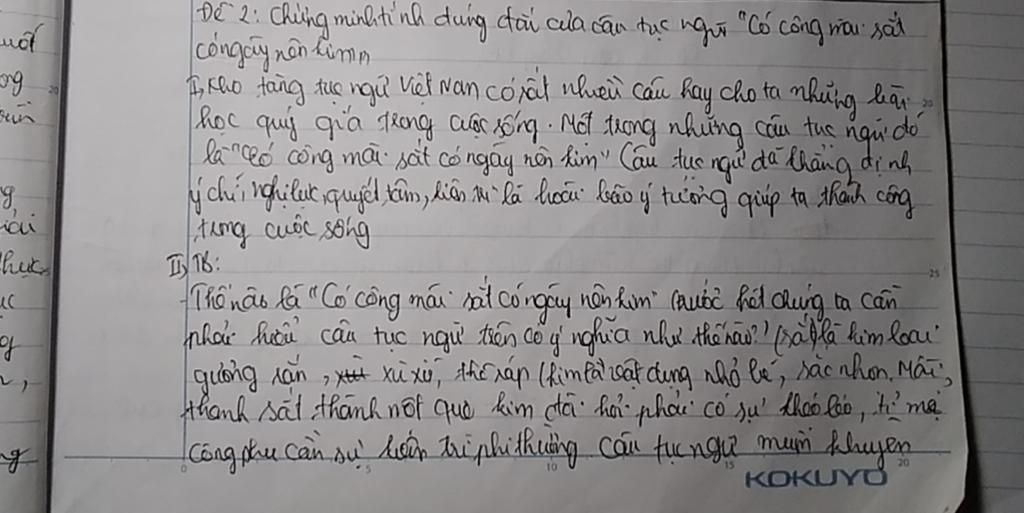 Đề 2: Chứng minh tính đúng đắn của câu tục ngữ "Có công mài sắt
có ngày nên kim"
I, Kho tàng tục ngữ Việt Nam có rất nhiều câu hay cho ta những bài
học quý giá trong cuộc sống. Một trong những câu tục ngữ đó
là "Có công mài sắt có ngày nên kim" Câu tục ngữ đã khẳng định
ý chí, nghị lực, quyết tâm, kiên trì là hoài bão ý tưởng giúp ta thành công
trong cuộc sống
II, TB:
Thế nào là "Có công mài sắt có ngày nên kim" trước hết chúng ta cần
phải hiểu câu tục ngữ trên có ý nghĩa như thế nào? (sắt) là kim loại
gường rắn, xù xì, thô ráp (kim là vật dụng nhỏ bé, sắc nhọn. Mài,
thanh sắt thành một que kim đòi hỏi phải có sự khéo léo, tỉ mỉ
công phu cần sự kiên trì phi thường câu tục ngữ muốn khuyên
KOKUYO